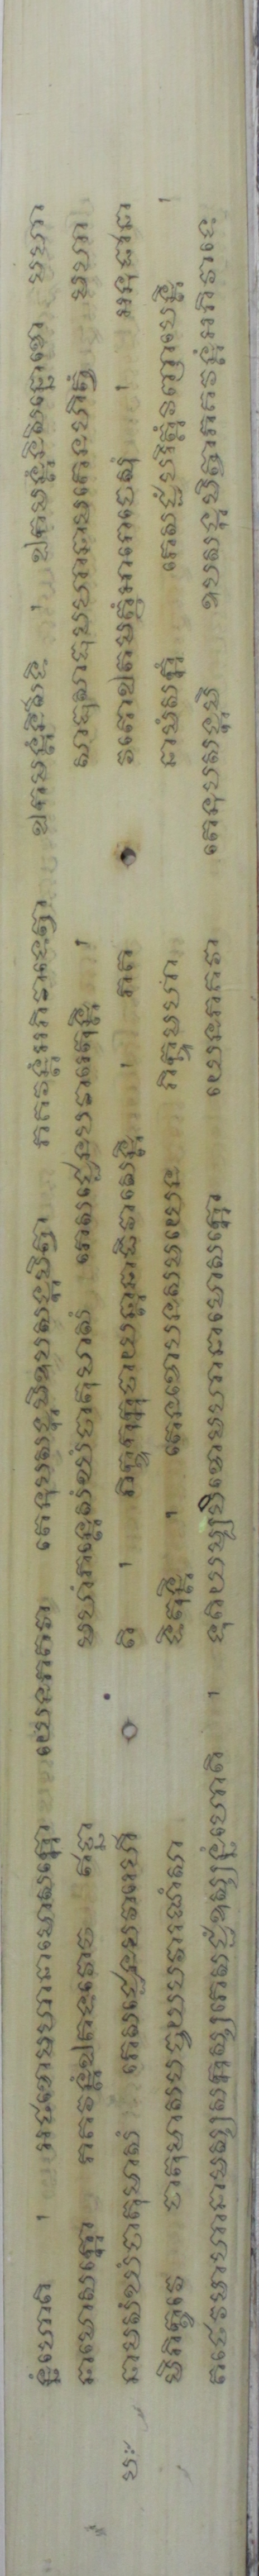 ន្នំហោតិ ។ អថខោមហានាមោសក្កោ យេនភគវា តេនុបសង្កមិឧបសង្កមិត្វា ភគវន្តំអភិវាទេត្វា ឯកមន្តំនិសីទិ ។ ឯកមន្តំនិសិន្នោខោ មហា
នាមោសក្កោ ភគវន្តំឯតទវោច ឥច្ឆា មហំភន្តេសំឃំចាតុមាសំ ភេសជ្ជេនបវារេតុន្តិ ។ សាធុសាធុមហានាមតេនហិត្វំ មហា
បៈ នាមសំឃំចាតុមាសំ ភេសជ្ជេនបវារេហី តិ ។ ភិក្ខូកុក្កុច្ចាយន្តានាធិវាសេន្តិ ។ ភគ វតោឯតមត្ថំអារោចេសុំ ។ អនុជានា
មិភិក្ខវេ ចាតុមាសបច្ចយបវារណំសា ទិតុន្តិ ។ តេនខោបនសមយេន ភិក្ខូមហា នាមំសក្កំ ភេសជ្ជំបរិត្តំវិញ្ញាបេន្តិ ។
តថេវមហានាមស្សសក្កស្សភេសជ្ជំឧស្សន្នំហោតិ ។ ទុតិយម្បិខោមហានាមោសក្កោ យេនភគវា តេនុបសង្កមិ ឧបសង្កមិត្វាភគវន្តំអភិវាទេ